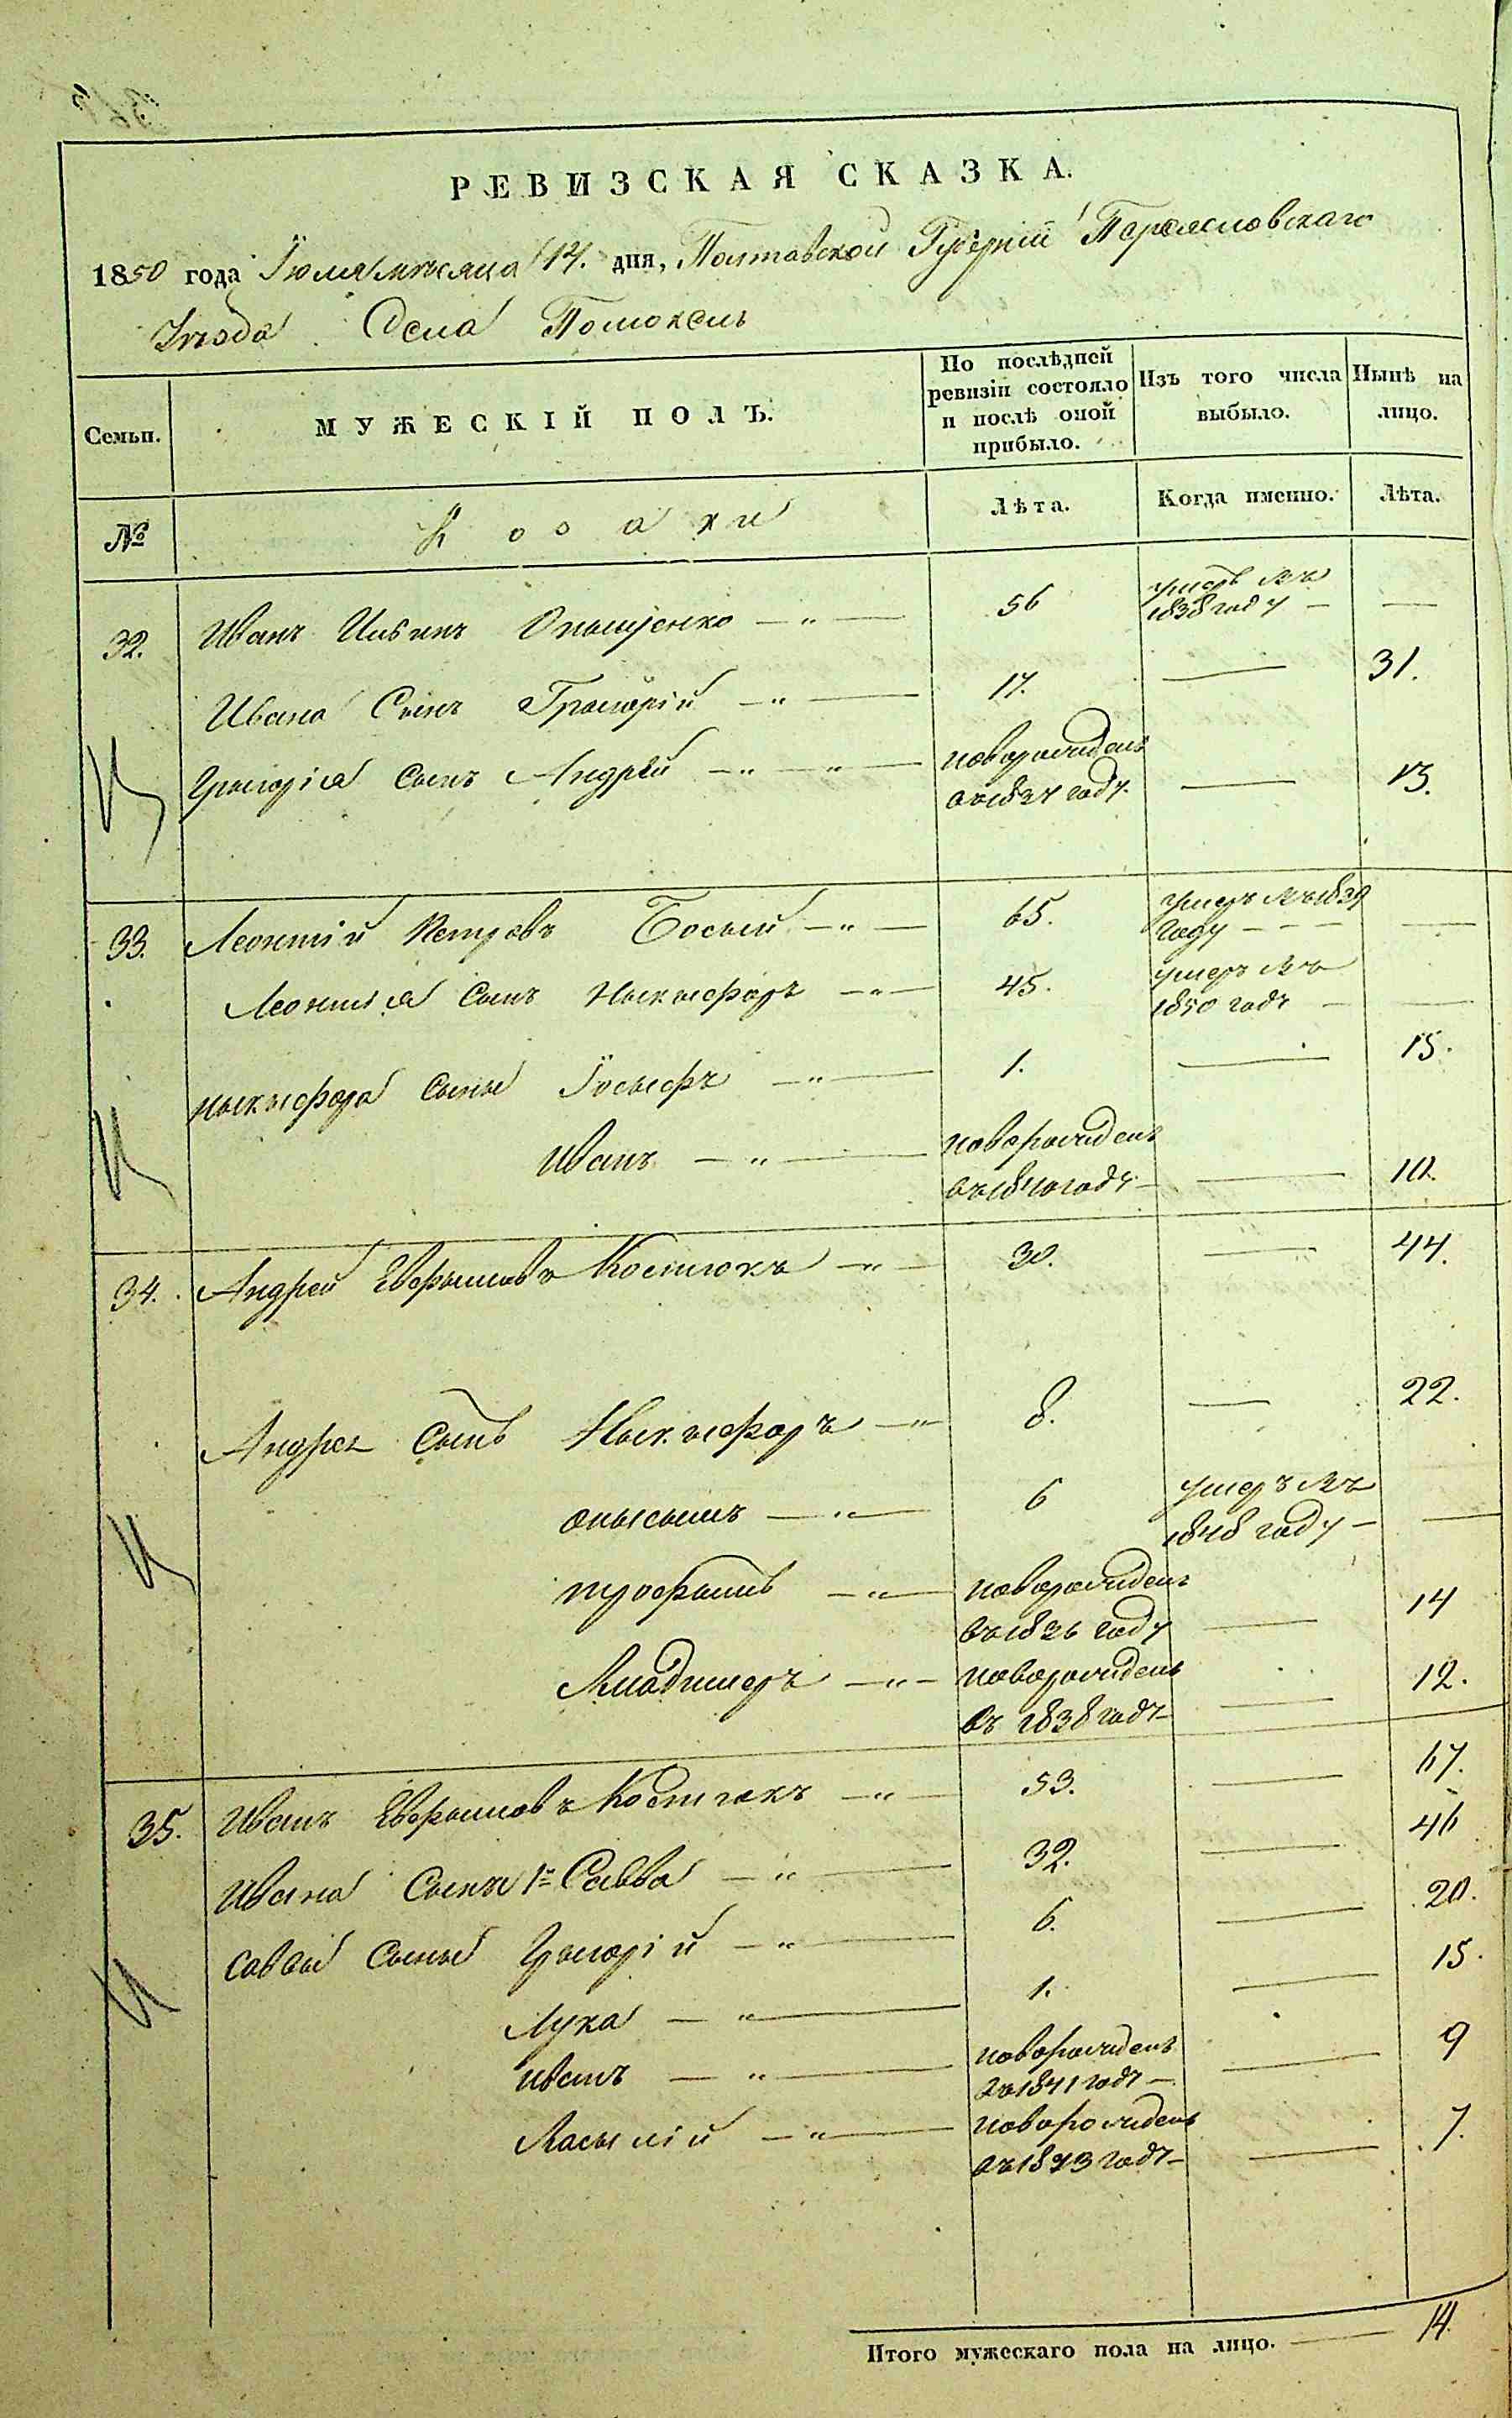 РЕВИЗСКАЯ СКАЗКА.
1850 года Іюля мѣсяца 14. дня, Полтавской Губерніи Переясловскаго
Уѣзда Села Помоклъ
Семьи.
МУЖЕСКІЙ ПОЛЪ.
По послѣдней ревизіи состояло и послѣ оной прибыло.
Изъ того числа выбыло.
Нынѣ на лицо.
№
Козаки
Лѣта.
Когда именно.
Лѣта.
32. Иванъ Ильинъ 56 умеръ въ 1838 году — —
Ивана Сынъ Григорій — " — 17. — 31.
Григорія сынъ Андрей — " — " — новорожденъ въ 1837 году. — 13.
33. Леонтій Петровъ Босый — " — 65. умеръ въ 1839 году — —
Леонтія сынъ Ныкыфоръ — " — 45. умеръ въ 1850 году — —
Ныкыфора сыны Іосыфъ — " — 1. — 15.
Иванъ — " — новорожденъ въ 1840 году — — 10.
34. Андрей Евфымовъ Костюкъ — " — 30. — 44.
Андрея Сынъ Ныкыфоръ — " 8. — 22.
Онысымъ — " — 6 умеръ въ 1848 году — —
Трофымъ — " — новорожденъ въ 1836 году — 14
Владимеръ — " — новорожденъ въ 1838 году — — 12.
35. Иванъ Евфымовъ Костюкъ — " — 53. — 67.
Ивана Сынъ 1й Савва — " — 32. — 46
Саввы Сыны Григорій — " — 6. — 20.
Лука — " — 1. — 15.
Иванъ — " — новорожденъ въ 1841 году — — 9
Васылій — " — новорожденъ въ 1843 году — — 7.
Итого мужескаго пола на лицо. — 14.